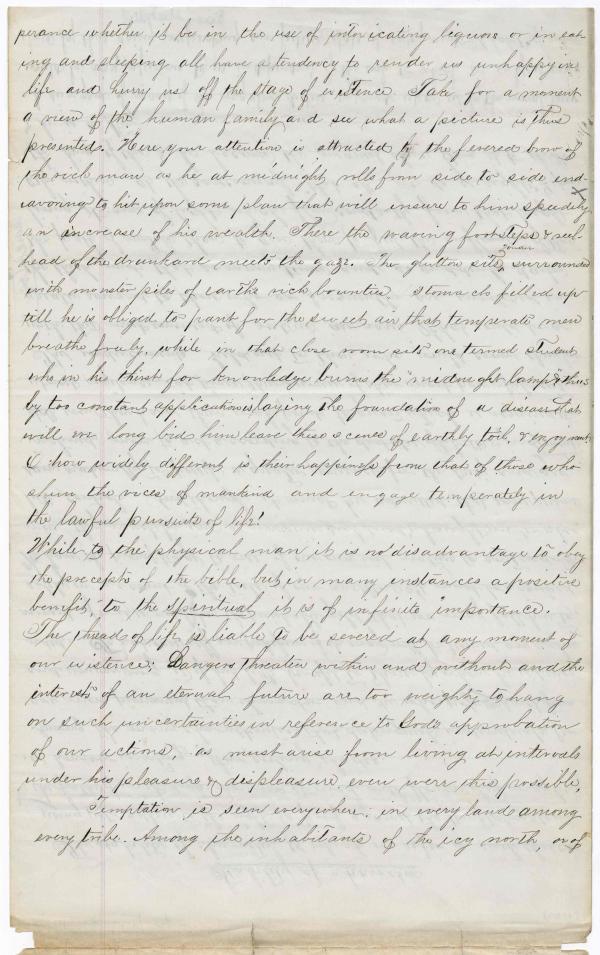 perance whether it be in the use of intoxicating liquors or in eat-
ing and sleeping all have a tendency to render us unhappy in
life and hurry us off the stage of existence. Take for a moment
a view of the human family and see what a picture is thus
presented. Here your attention is attracted by the fevered brow of
the rich man as he at midnight rolls from side to side end-
eavoring to hit upon some plan that will insure to him speedily
an increase of his wealth. There the waving footsteps &
head of the drunkard meets the gaze. The glutton sits surrounded
with monster piles of earths rich bounties, stomach filled up
till he is obliged to pant for the sweet air that temperate men
breathe freely, while in that close room sits one termed student
who in his thirst for knowledge burns the "midnight lamp" & thus
by too constant application is laying the foundation of a disease that
will ere long bid him leave these scenes of earthly toil, & enjoyment
O how widely different is their happiness from that of those who
shun the vices of mankind and engage temperately in
the lawful pursuits of life!
While to the physical man it is no disadvantage to obey
the precepts of the bible, but in many instances a positive
benefit, to the spiritual it is of infinite importance.
The thread of life is liable to be severed at any moment of
our existence; Dangers threaten within and without and the
interests of an eternal future are too weighty to hang
on such uncertainties in reference to God's approbation
of our actions, as must arise from living at intervals
under his pleasure & displeasure even were this possible,
Temptation is seen everywhere; in every land among
every tribe. Among the inhabitants of the icy north, or of